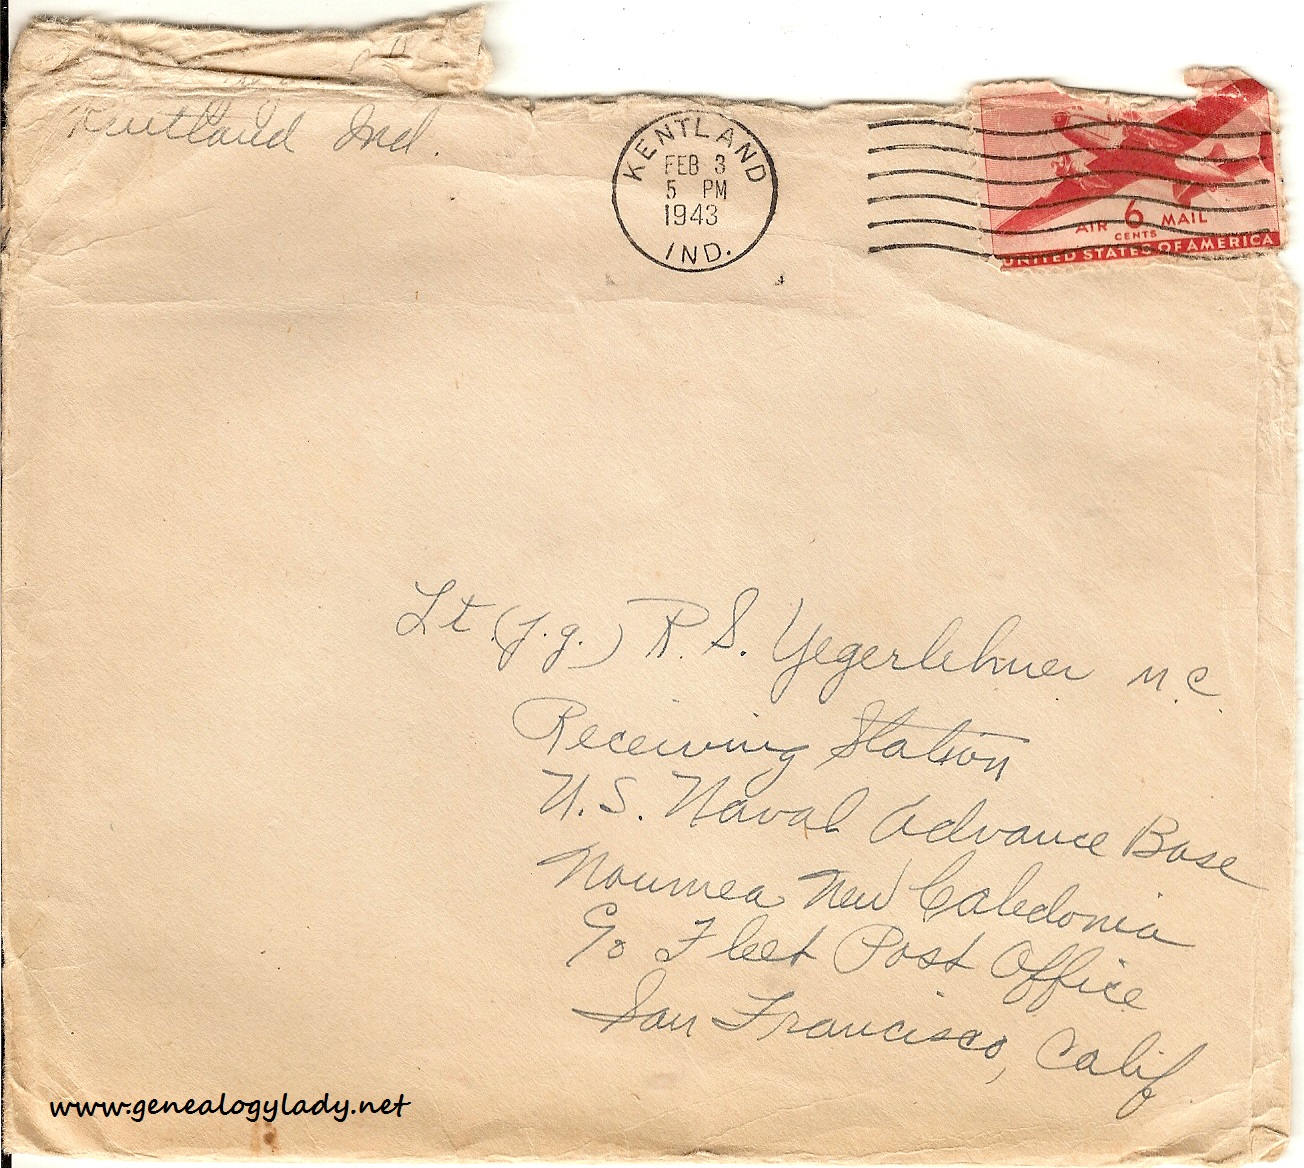 Kentland Ind.
KENTLAND
FEB 3
5 PM
1943
IND.
AIR 6 MAIL
CENTS
UNITED STATES OF AMERICA
Lt. (j.g.) R. S. Yegerlehner M.C.
Receiving Station
U.S. Naval Advance Base
Noumea New Caledonia
c/o Fleet Post Office
San Francisco, Calif
www.genealogylady.net